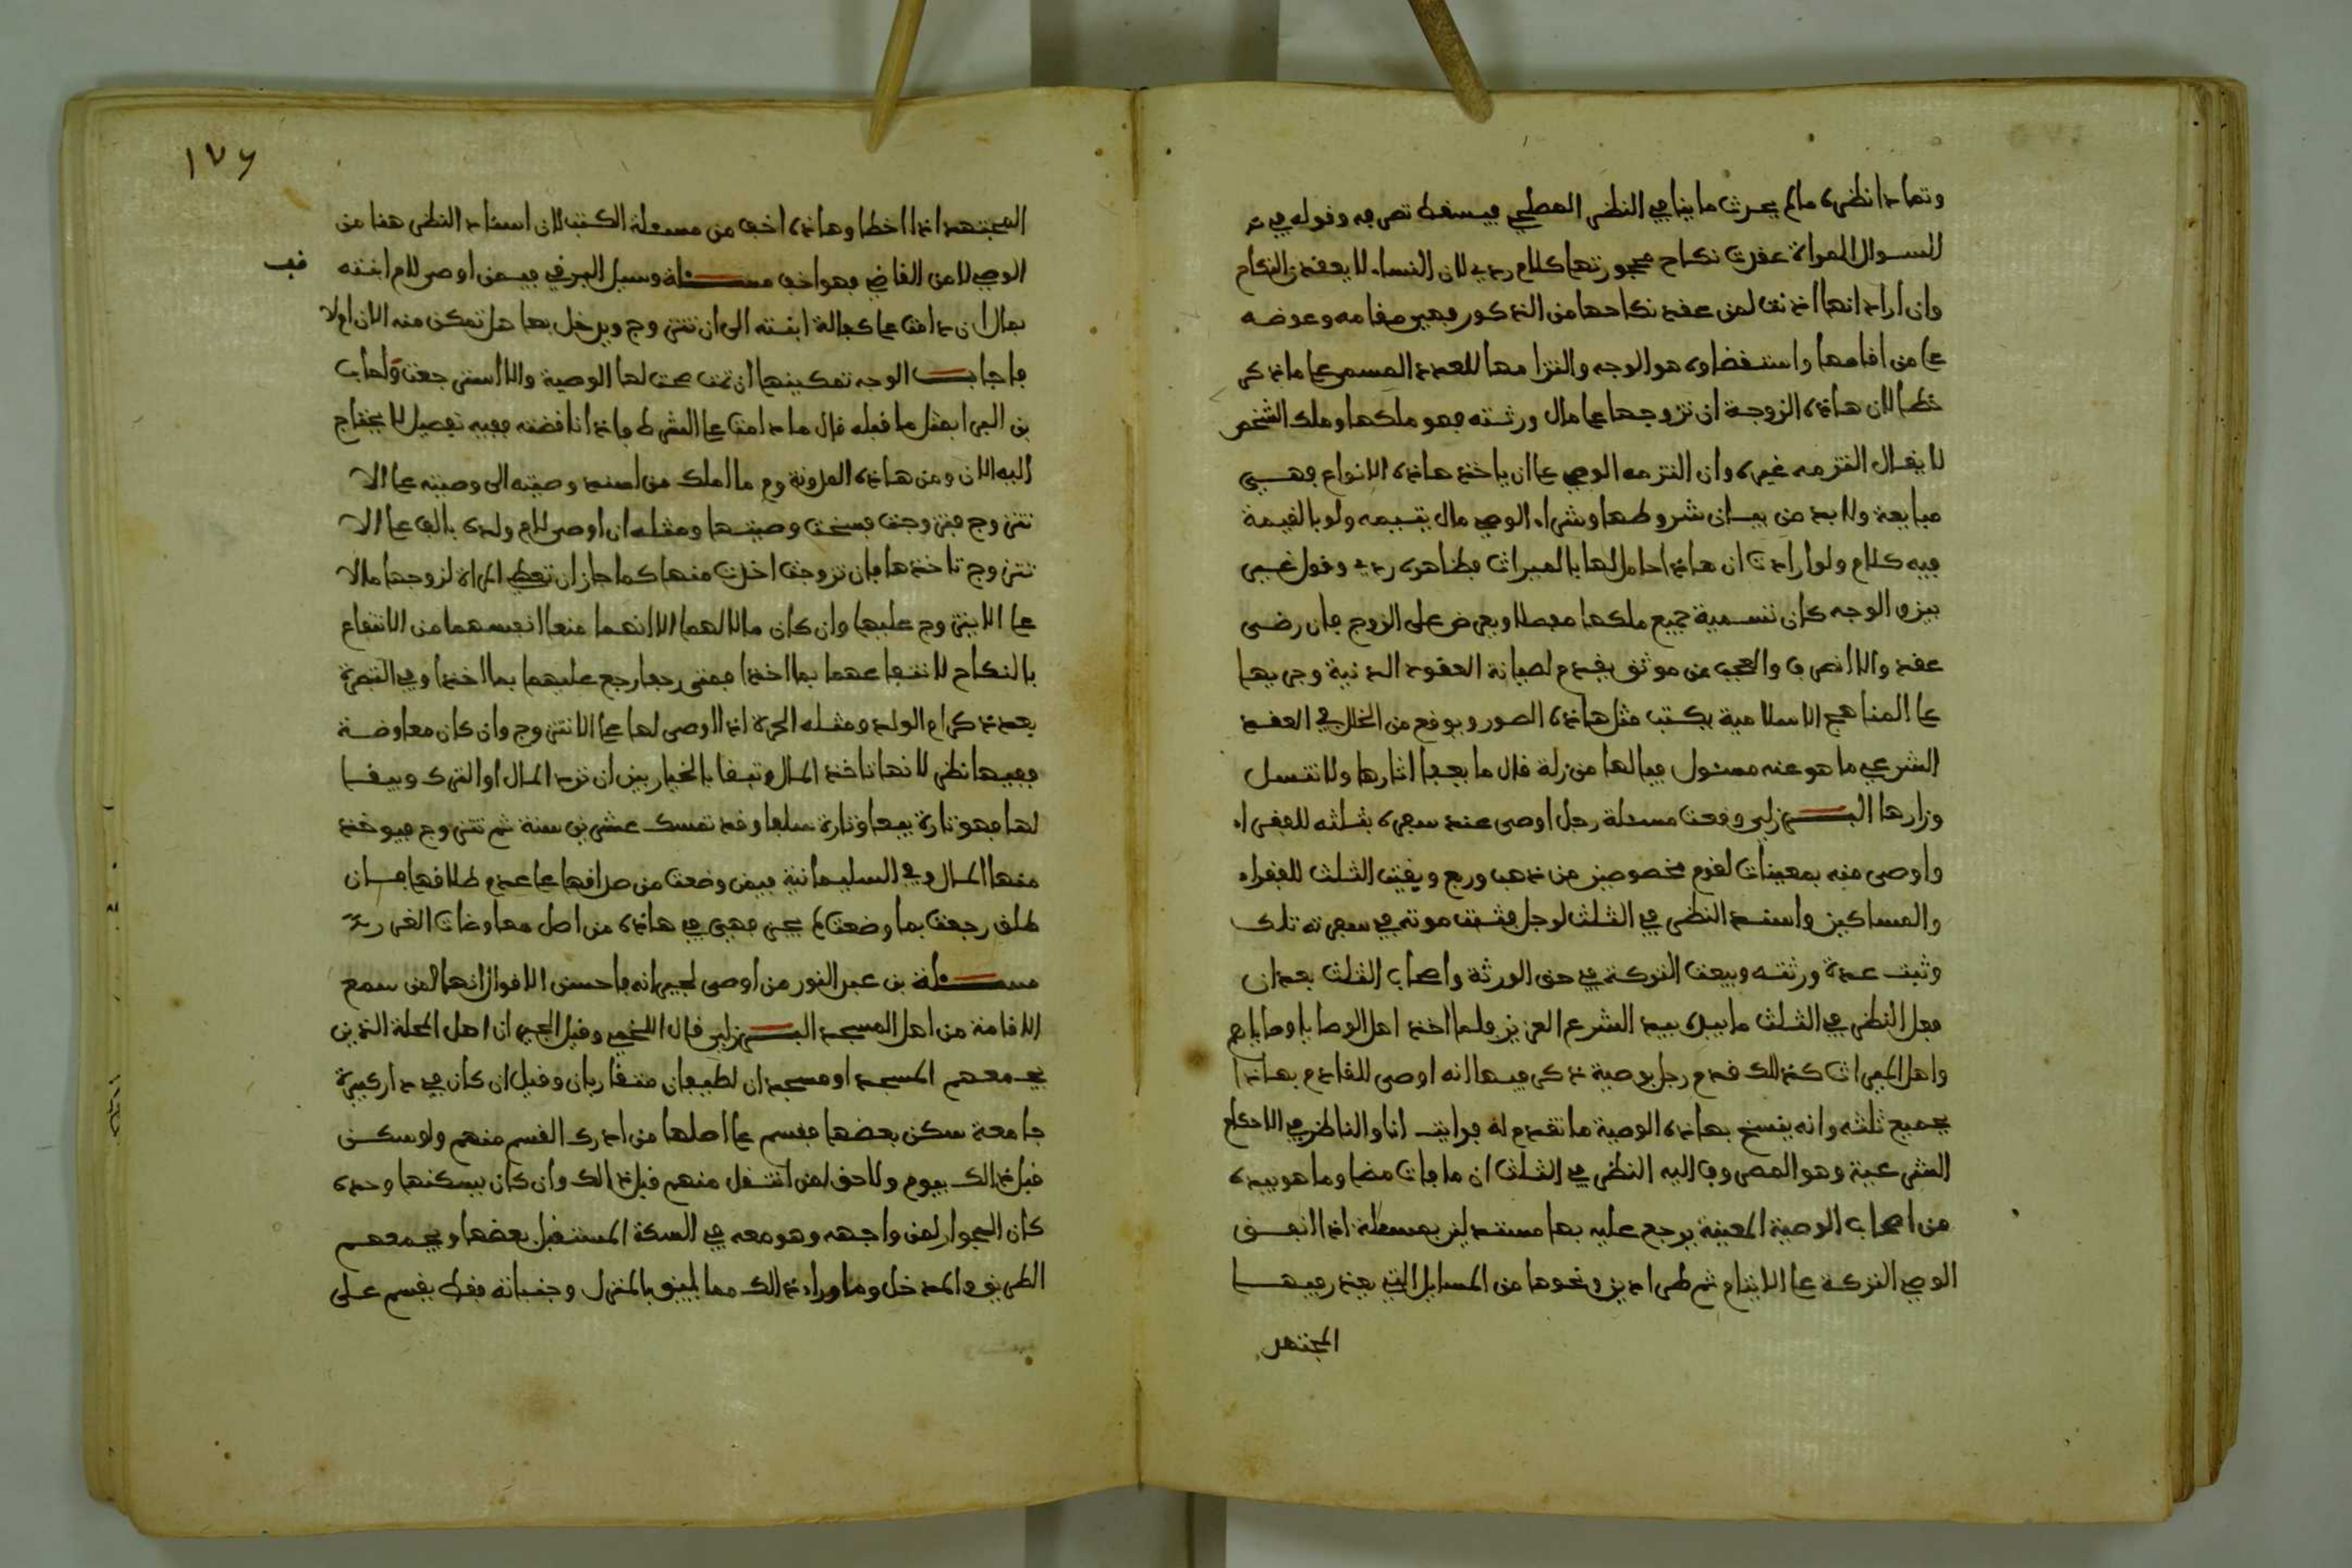 وتمادا نظره ما لم يحدث ما ينافي النظر المصلحي فيسقط تصرفه وقوله في
السوال المراة عقدت نكاح محجورتها كلام ردي لان النساء لا يعقدن النكاح
وان اراد انها اذنت لمن عقد نكاحها من الذكور فهي مقامه وعوضه
على من اقامها واستقضاؤه هو الوجه والتزامها للعدد المسمى على ما ذكر
خطا لان هاذه الزوجة ان تزوجها على مال ورثته فهو ملكها وملك الشخص
لا يقال التزمه غيره وان التزمه الوصي على ان ياخذ هاذه الانواع فهي
مبايعة ولا بد من بيان شروطها وشراء الوصي مال يتيمه ولو بالقيمة
فيه كلام ولو ارادت ان هاذا حامل لها بالميراث فظاهره ردي وقول غير
بين والوجه كان تسمية جميع ملكها مفصلا ويعرض على الزوج فان رضي
عقد والا انصرف والعجب من موثق يقدم لصيانة العقود الدنية وجريها
على المناهج الاسلامية يكتب مثل هاذه الصور ويوقع من الخلل في العقد
الشرعي ما هو عنه مسئول فيا لها من زلة قال ما يعفا اثارها ولا تنسل
وزارها البـرزلي وقعت مسئلة رجل اوصى عند سفره بثلثه للفقراء
واوصى منه بمعينات لقوم مخصوصين من ذهب وربع وبقيت الثلث للفقراء
والمساكين واسند النظر في الثلث لرجل فثبت موته في سفرته تلك
وثبت عدة ورثته وبيعت التركة في حق الورثة واصحاب الثلث بعد ان
فعل النظر في الثلث ما بيده بيد الشرع العزيز فلما اخذ اهل الوصايا وصاياهم
واهل الميراث كذلك قدم رجل بوصية ذكر فيها انه اوصى للقادم بهاذا
بجميع ثلثه وانه ينسخ بهاذه الوصية ما تقدم له فرايت انا والناظر في الاحكام
الشرعية وهو المصروف اليه النظر في الثلث ان ما فات مضا وما هو بيده
من اصحاب الوصية المعينة يرجع عليه بها مستدلين بمسئلة اذا انفق
الوصي التركة على الايتام ثم طرا دين ونحوها من المسايل التي يعذر فيها
المجتهد
١٧٦
المجتهد اذا اخطا وهاذه اخف من مسئلة الكتب لان اسناد النظر هنا من
الوصي لا من القاضي فهو اخف مسئلة وسيل البرقي فيمن اوصى لام ابنته
قف
بمال ان دامت على كفالة ابنته الى ان تتزوج ويدخل بها هل تمكن منه الان او لا
فاجاب الوجه تمكينها ان تمت صحت لها الوصية والا استرجعت واجاب
بن البرا بمثل ما قبله قال ما دامت على الشرط فاذا ناقضته ففيه تفصيل لا يحتاج
اليه الان ومن هاذه المدونة وم ما الملك من اسند وصيته الى وصيته على الا
تتزوج فتزوجت فسخت وصيتها ومثله ان اوصى لام ولده بالف على الا
تتزوج تاخذها فان تزوجت اخذت منها كما جاز ان تعطي المراة لزوجها مالا
على الا يتزوج عليها وان كان مالا لهما الا انهما منعا انفسهما من الانتفاع
بالنكاح لانتفاعهما بما اخذا فمتى رجعا رجع عليهما بما اخذا وفي التبصرة
بعد ذكر ام الولد ومثله الحرة اذا اوصى لها على الا تتزوج وان كان معاوضة
ففيها نظر لانها تاخذ المال وتبقا بالخيار بين ان ترد المال او الترك ويبقا
لها فهو تارة بيعا وتارة سلفا وقد تمسك عشرين سنة ثم تتزوج فيوخذ
منها المال وفي السليمانية فيمن وضعت من صداقها على عدم طلاقها فان
طلق رجعت بما وضعت لم يجز فهي في هاذه من اصل معاوضات الغرر
مسئلة بن عبد النور من اوصى لجيرانه فاحسن الاقوال انها لمن سمع
الاقامة من اهل المسجد البـرزلي قال اللخمي وقيل الجيران اهل المحلة الذين
يجمعهم المسجد او مسجدان لطيفان متقاربان وقيل ان كان في دار كبيرة
جامعة سكن بعضها فقسم على اصلها من ادرك القسم منهم ولو سكن
قبل ذالك بيوم ولا حق لمن انتقل منهم قبل ذالك وان كان يسكنها وحده
كان الجوار لمن واجهه وهو معه في السكة المستقبل بعضها ويجمعهم
الطريق والمدخل وما وراء ذالك مما يلي بالمنزل وجنباته فقط يقسم على